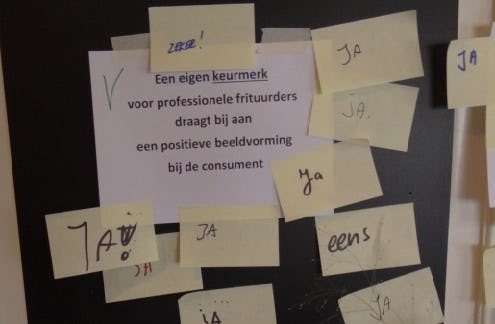 ZEKER!
JA
JA
Een eigen keurmerk
voor professionele frituurders
draagt bij aan
een positieve beeldvorming
bij de consument
JA.
Ja
JA!
JA
eens
JA
JA
JA